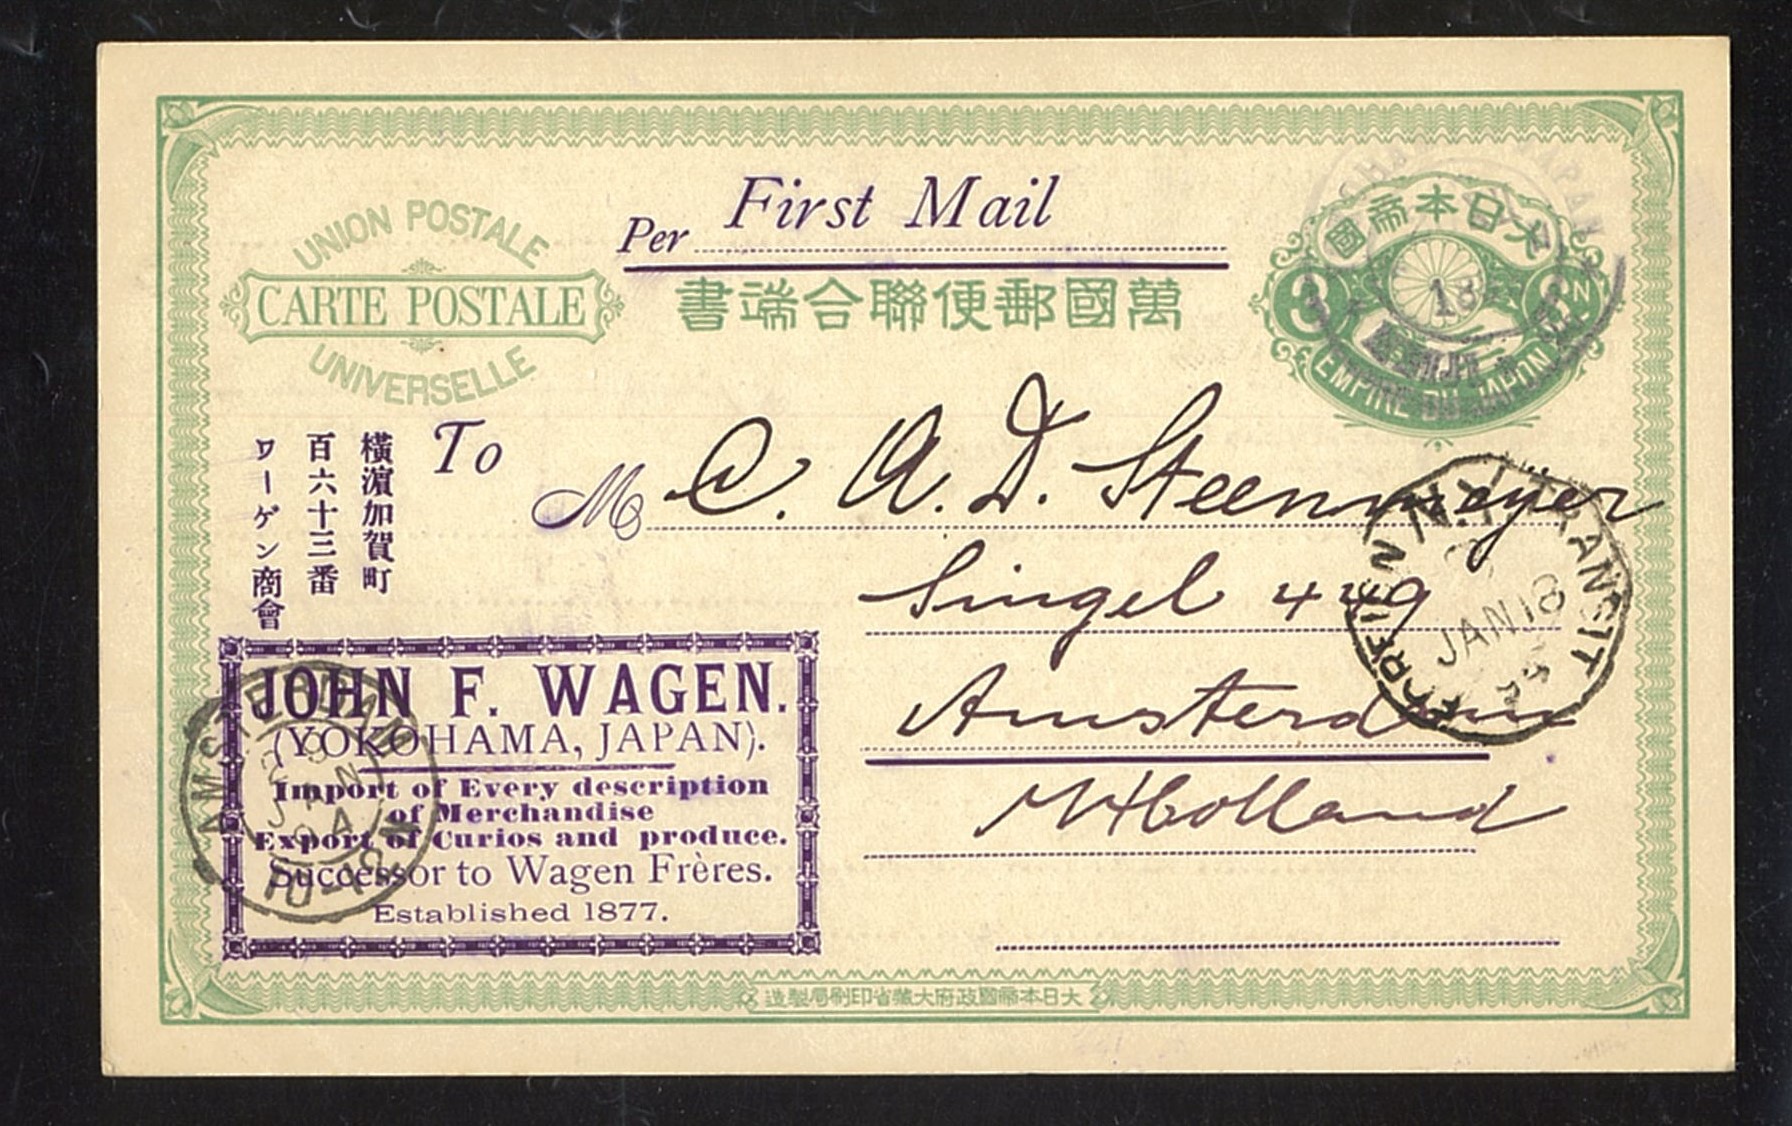 Per First Mail
UNION POSTALE
CARTE POSTALE
UNIVERSELLE
書端合聯便郵國萬
國帝本日大
3 SN
EMPIRE DU JAPON
To
M C. A. D. Steenmeyer
Singel 449
Amsterdam
Holland
橫濵加賀町
百六十三番
ワーゲン商會
N.Y. TRANSIT
JAN 18
FOREIGN
JOHN F. WAGEN.
(YOKOHAMA, JAPAN).
Import of Every description
of Merchandise
Export of Curios and produce.
Successor to Wagen Frères.
Established 1877.
AMSTERDAM
JAN
94
造製局刷印省藏大府政國帝本日大